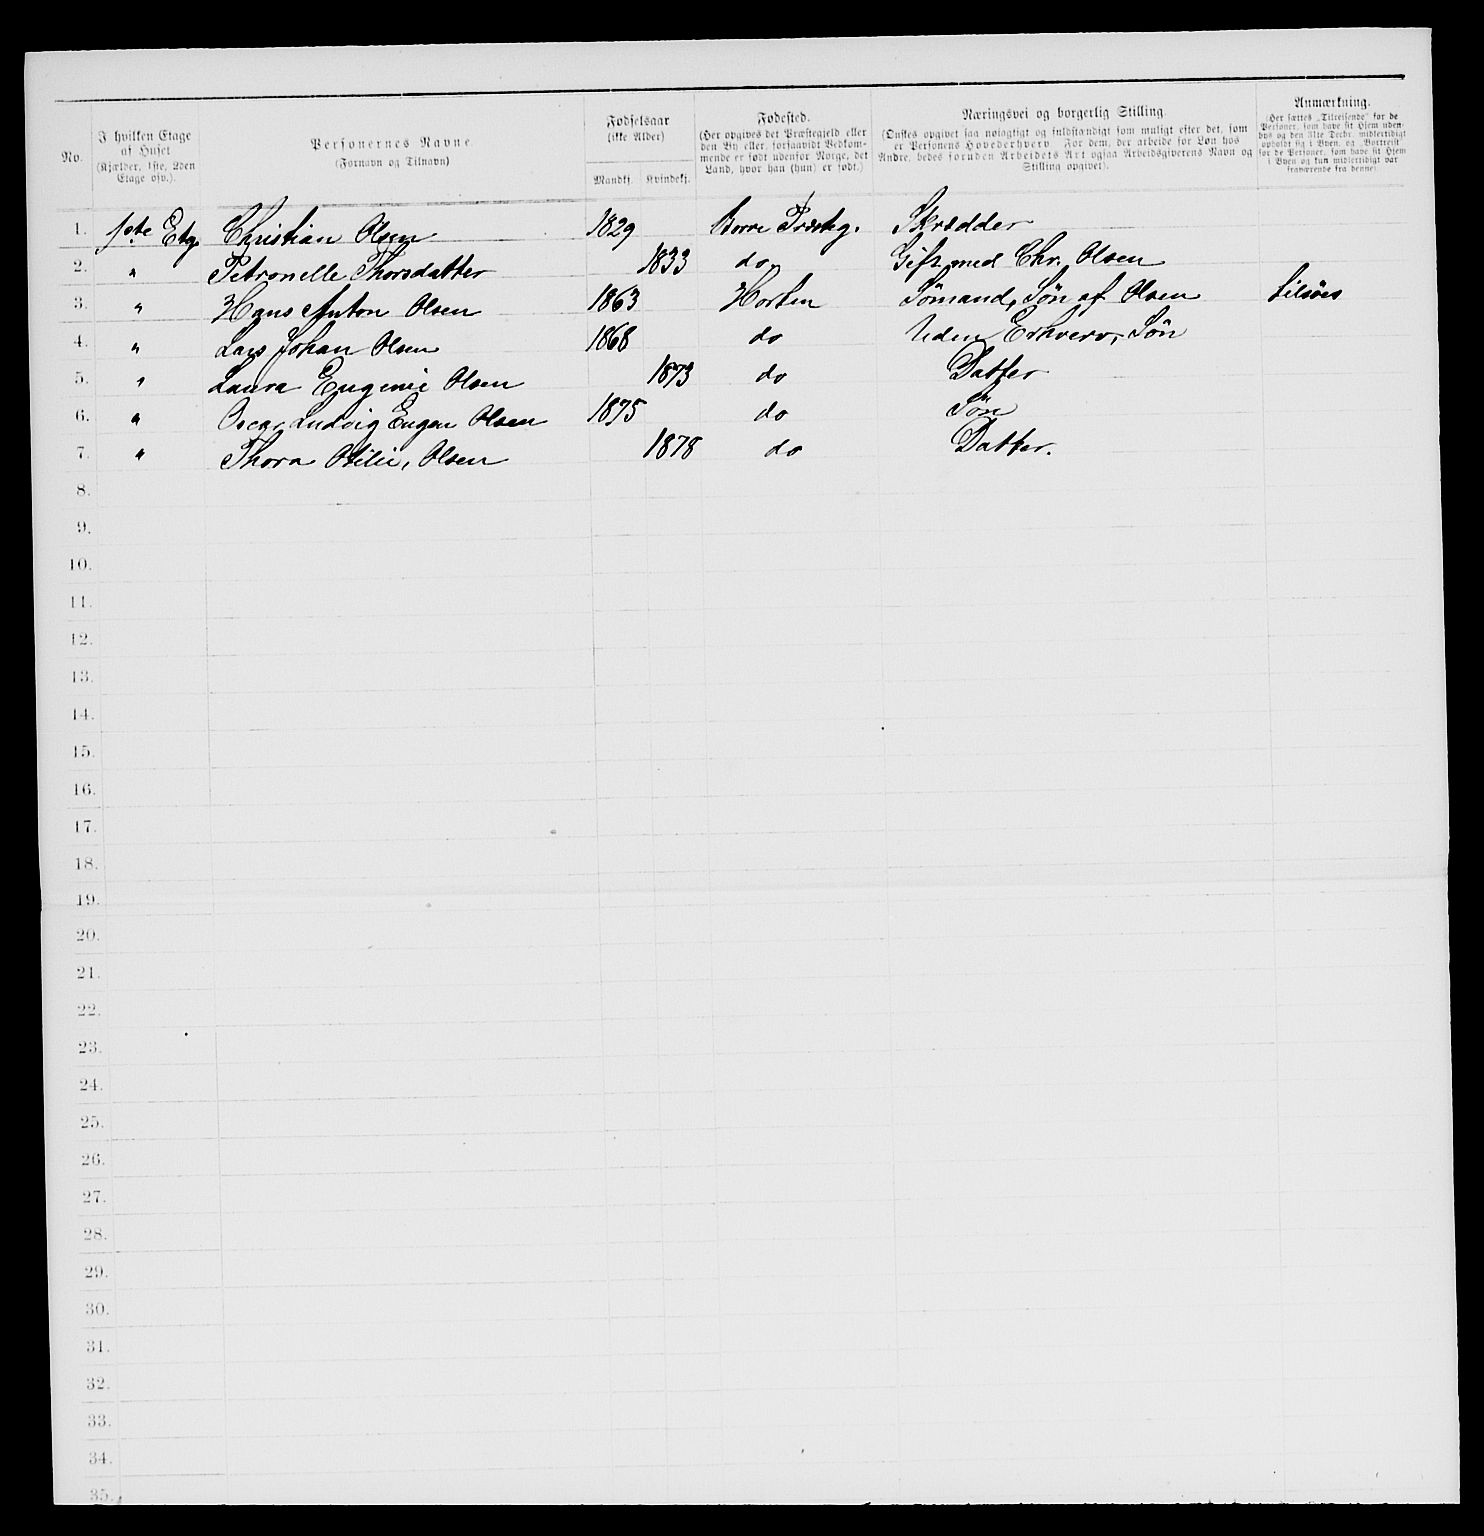 No.
I hvilken Etage af Huset (Kjælder, 1ste, 2den Etage osv.).
Personernes Navne. (Fornavn og Tilnavn)
Fødselsaar (ikke Alder)
Mandkj. Kvindekj.
Fødested. (Her opgives det Præstegjeld eller den By eller, forsaavidt Vedkommende er født udenfor Norge, det Land, hvor han (hun) er født.)
Næringsvei og borgerlig Stilling. (Ønskes opgivet saa nøiagtigt og fuldstændigt som muligt efter det, som er Personens Hovederhverv. For dem, der arbeide for Løn hos Andre, bedes foruden Arbeidets Art ogsaa Arbeidsgiverens Navn og Stilling opgivet).
Anmærkning. (Her sættes „Tilreisende" for de Personer, som have sit Hjem udenbys og den 31te Decbr. midlertidigt opholdt sig i Byen, og „Bortreist" for de Personer, som have sit Hjem i Byen og kun midlertidigt var fraværende fra denne)
1. 1ste Etg. Christian Olsen 1829 Borre Præstg. Skrædder
2. " Petronelle Thorsdatter 1833 do Gift med Chr. Olsen
3. " Hans Anton Olsen 1863 Horten Sömand, Søn af Olsen tilsøes
4. " Lars Johan Olsen 1868 do Uden Erhverv, Søn
5. " Laura Eugenie Olsen 1873 do Datter
6. " Oscar Ludvig Eugen Olsen 1875 do Søn
7. " Thora Otilie, Olsen 1878 do Datter.
8.
9.
10.
11.
12.
13.
14.
15.
16.
17.
18.
19.
20.
21.
22.
23.
24.
25.
26.
27.
28.
29.
30.
31.
32.
33.
34.
35.